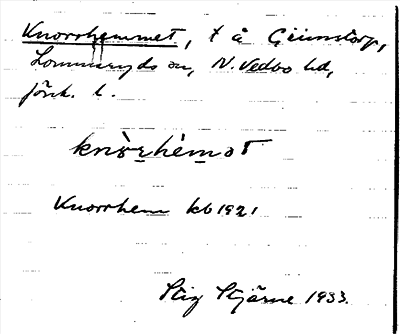 Knorrhemmet, t å Grimstorp,
Lommaryds sn, N. Vedbo hd,
Jönk. l.
knòr̲hèm̲ət
Knorrhem kb 1921
Stig Stjärne 1933.